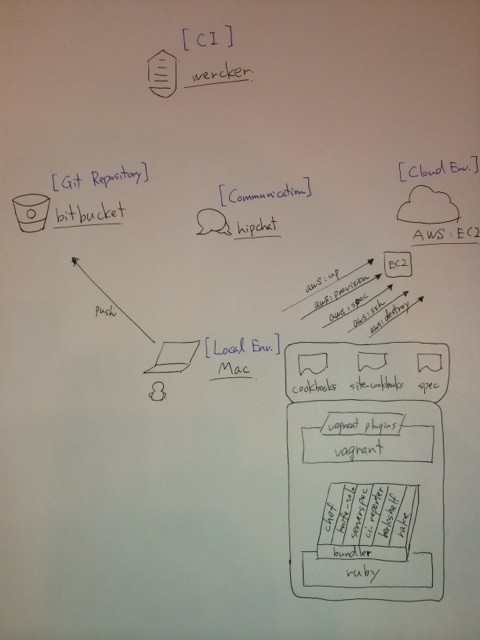 [CI]
wercker
[Git Repository]
bitbucket
[Communication]
hipchat
[Cloud Env.]
AWS:EC2
EC2
aws:up
aws:provision
aws:spec
aws:ssh
aws:destroy
push
[Local Env.]
Mac
cookbooks
site-cookbooks
spec
vagrant plugins
vagrant
chef
knife-solo
serverspec
ci_reporter
berkshelf
rake
bundler
ruby